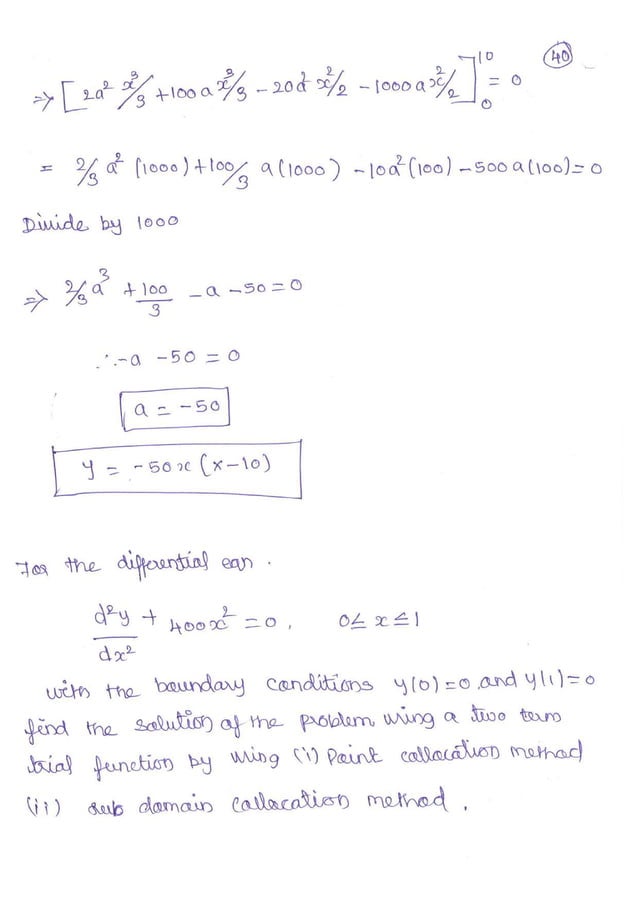 40
⇒ [2a² x³/3 + 100a x³/3 − 20a² x²/2 − 1000a x²/2]₀¹⁰ = 0
= 2/3 a² (1000) + 100/3 a(1000) − 10a²(100) − 500a(100) = 0
Divide by 1000
⇒ 2/3 a³ + 100/3 − a − 50 = 0
∴ −a − 50 = 0
a = −50
y = −50x (x−10)
For the differential eqn.
d²y/dx² + 400x² = 0, 0 ≤ x ≤ 1
with the boundary conditions y(0)=0, and y(1)=0
find the solution of the problem using a two term
trial function by using (i) Point collocation method
(ii) sub domain collocation method.